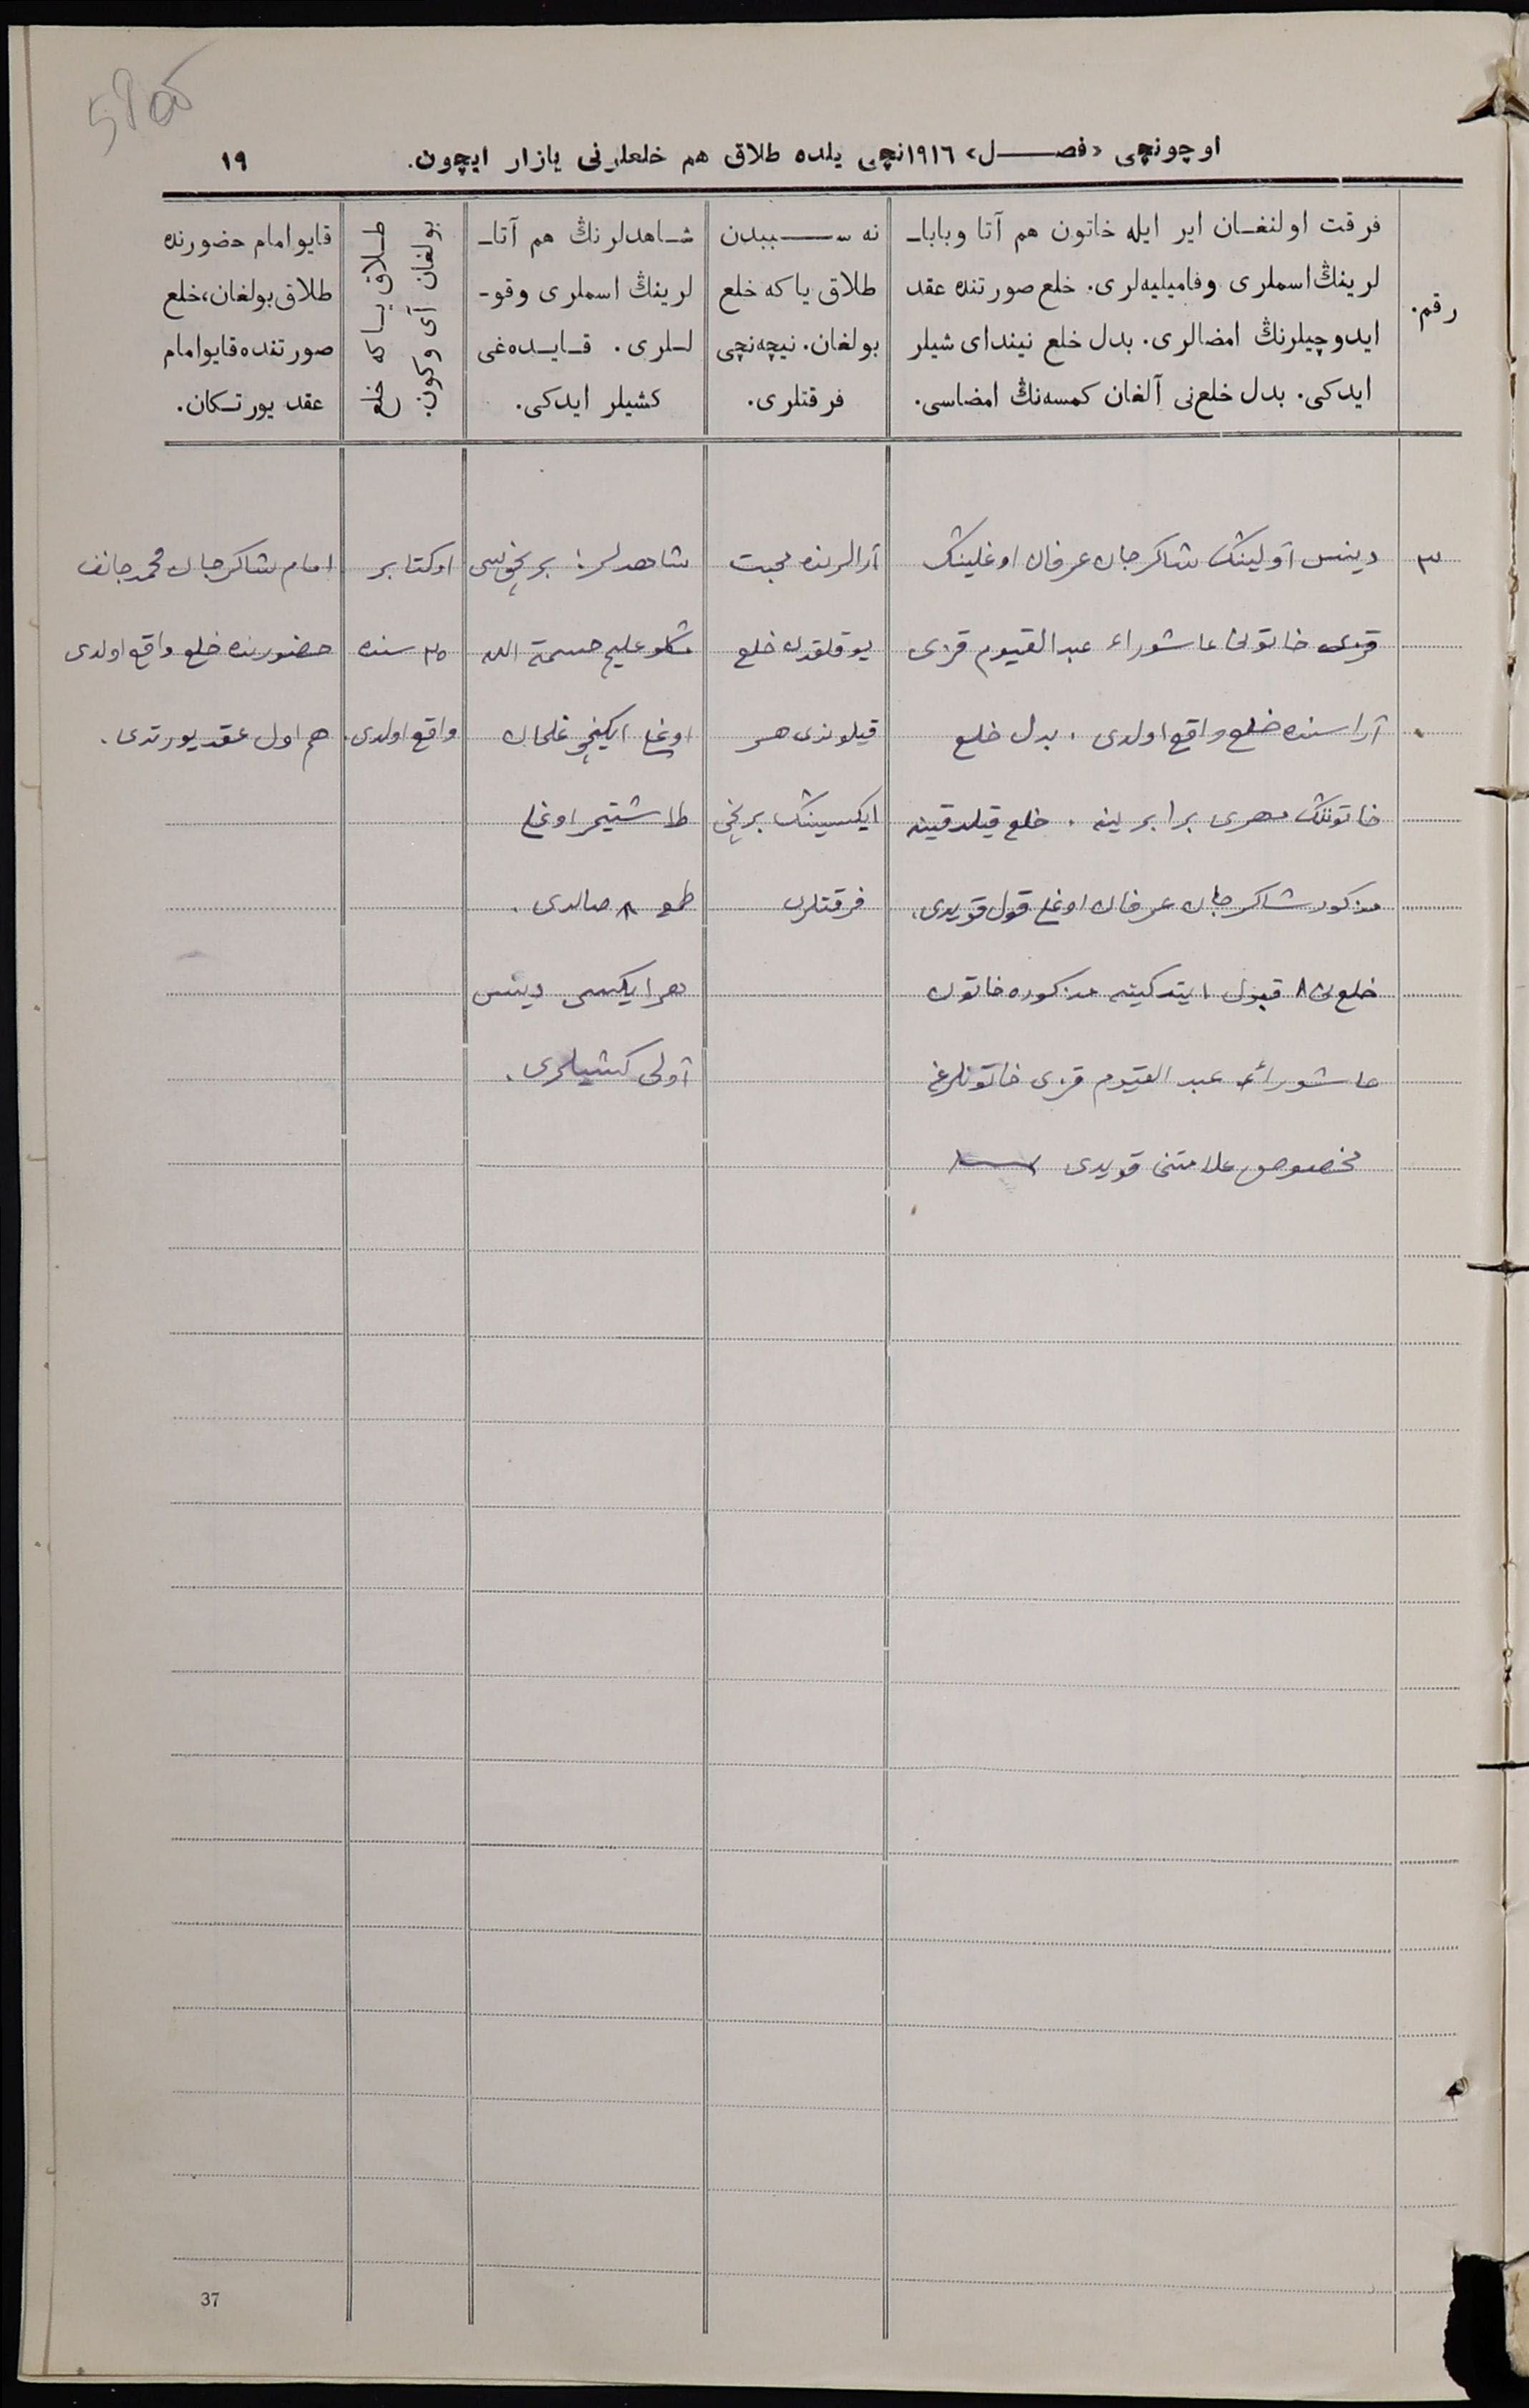 اوچونچی «فصل» ١٩١٦نچی یلده طلاق هم خلعلرنی یازار ایچون.
١٩
رقم.
فرقت اولنغان ایر ایله خاتون هم آتا وبابا-
لرینڭ اسملری وفامیلیه‌لری. خلع صورتنده عقد
ایدوچیلرنڭ امضالری. بدل خلع نیندای شیلر
ایدکی. بدل خلع‌نی آلغان کمسه‌نڭ امضاسی.
نه سببدن
طلاق یا که خلع
بولغان. نیچه‌نچی
فرقتلری.
شاهدلرنڭ هم آتا-
لرینڭ اسملری وقو-
للری. قایده‌غی
کشیلر ایدکی.
طلاق یا که خلع
بولغان آی و کون.
قایو امام حضورنده
طلاق بولغان، خلع
صورتنده قایو امام
عقد یورتکان.
٣
دینس آولینڭ شاکرجان عرفان اوغلینڭ
خاتونی عاشوراء عبد القیوم قزی
آراسنده خلع واقع اولدی. بدل خلع
خاتوننڭ مهری برابرینه. خلع قیلدقینه
مذکور شاکرجان عرفان اوغلی قول قویدی.
خلع‌نی قبول ایتدکینه مذکوره خاتون
عاشوراء عبد القیوم قزی خاتونلرغه
مخصوص علامتنی قویدی
آرالرنده محبت
یوقلقدن خلع
قیلوندی هر
ایکیسینڭ برنچی
فرقتلری
شاهدلر: برنچیسی
اوغلی ایکنچی غلمان
طاشتیمر اوغلی
طمغا صالدی.
هر ایکیسی دینس
آولی کشیلری.
اوکتابر
٢٥ سنده
واقع اولدی.
امام شاکرجان محمدجانف
حضورنده خلع واقع اولدی
هم اول عقد یورتدی.
37